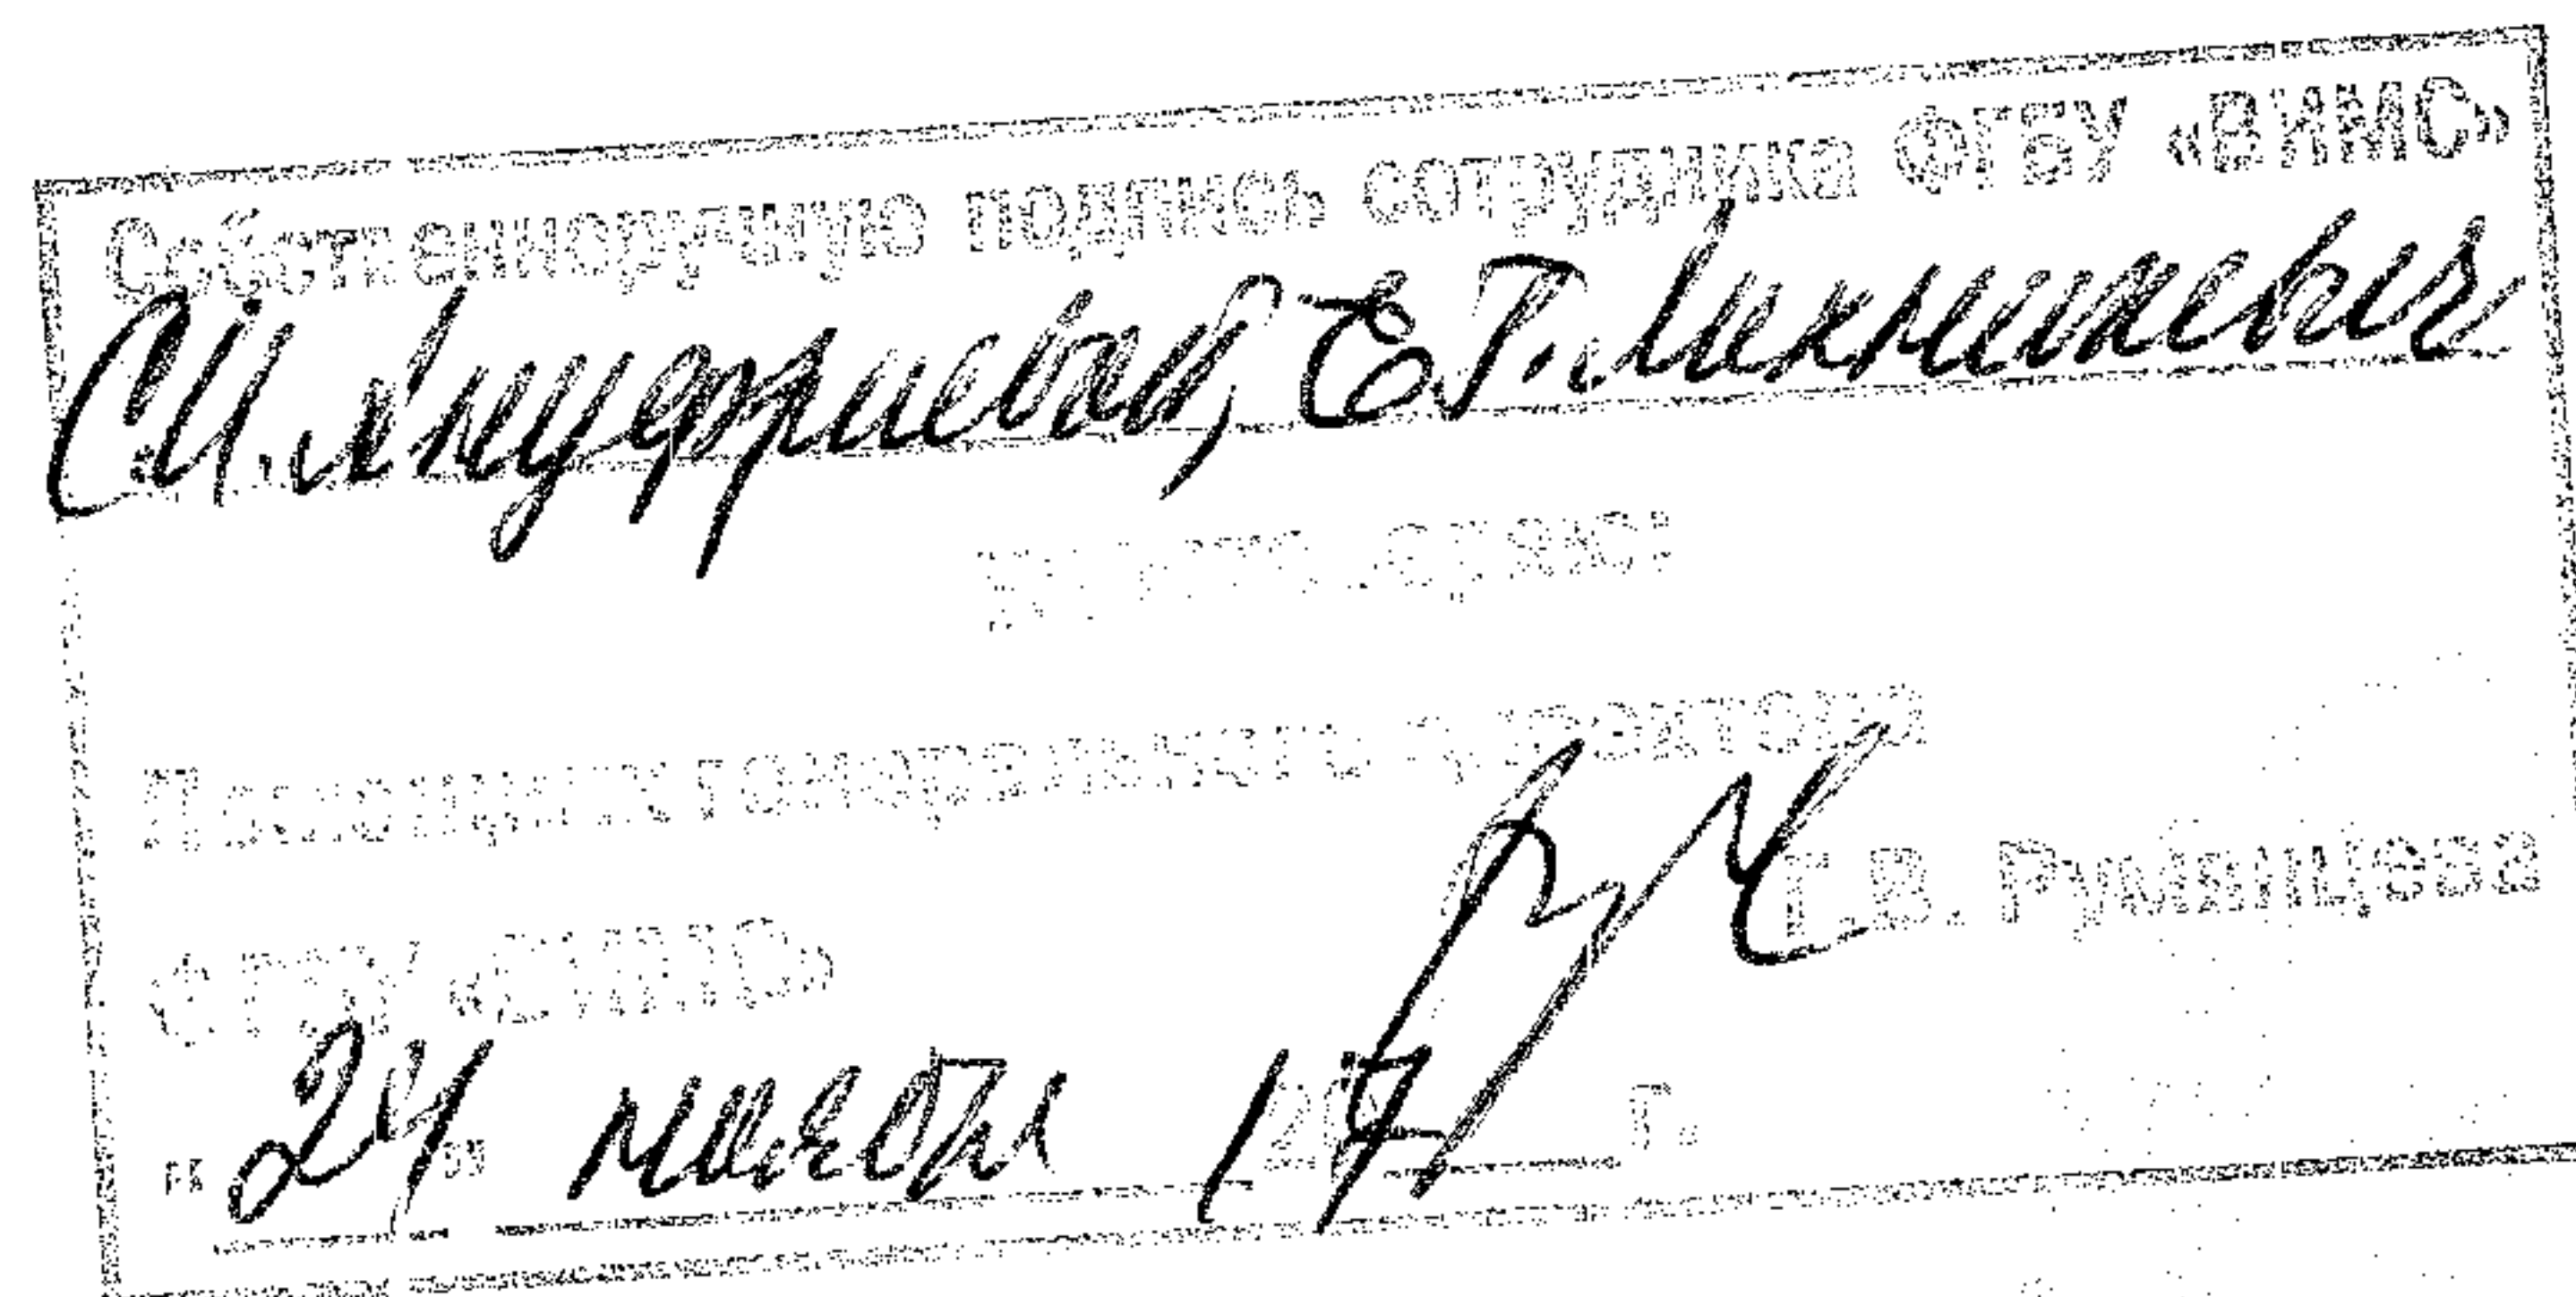 Собственноручную подпись сотрудника ФГБУ «ВИМС»
С.И. Ануфриевой, Е.Г. Лихникевич
удостоверяю:
Помощник генерального директора
Г.В. Румянцева
ФГБУ «ВИМС»
"24" 20 17 г.